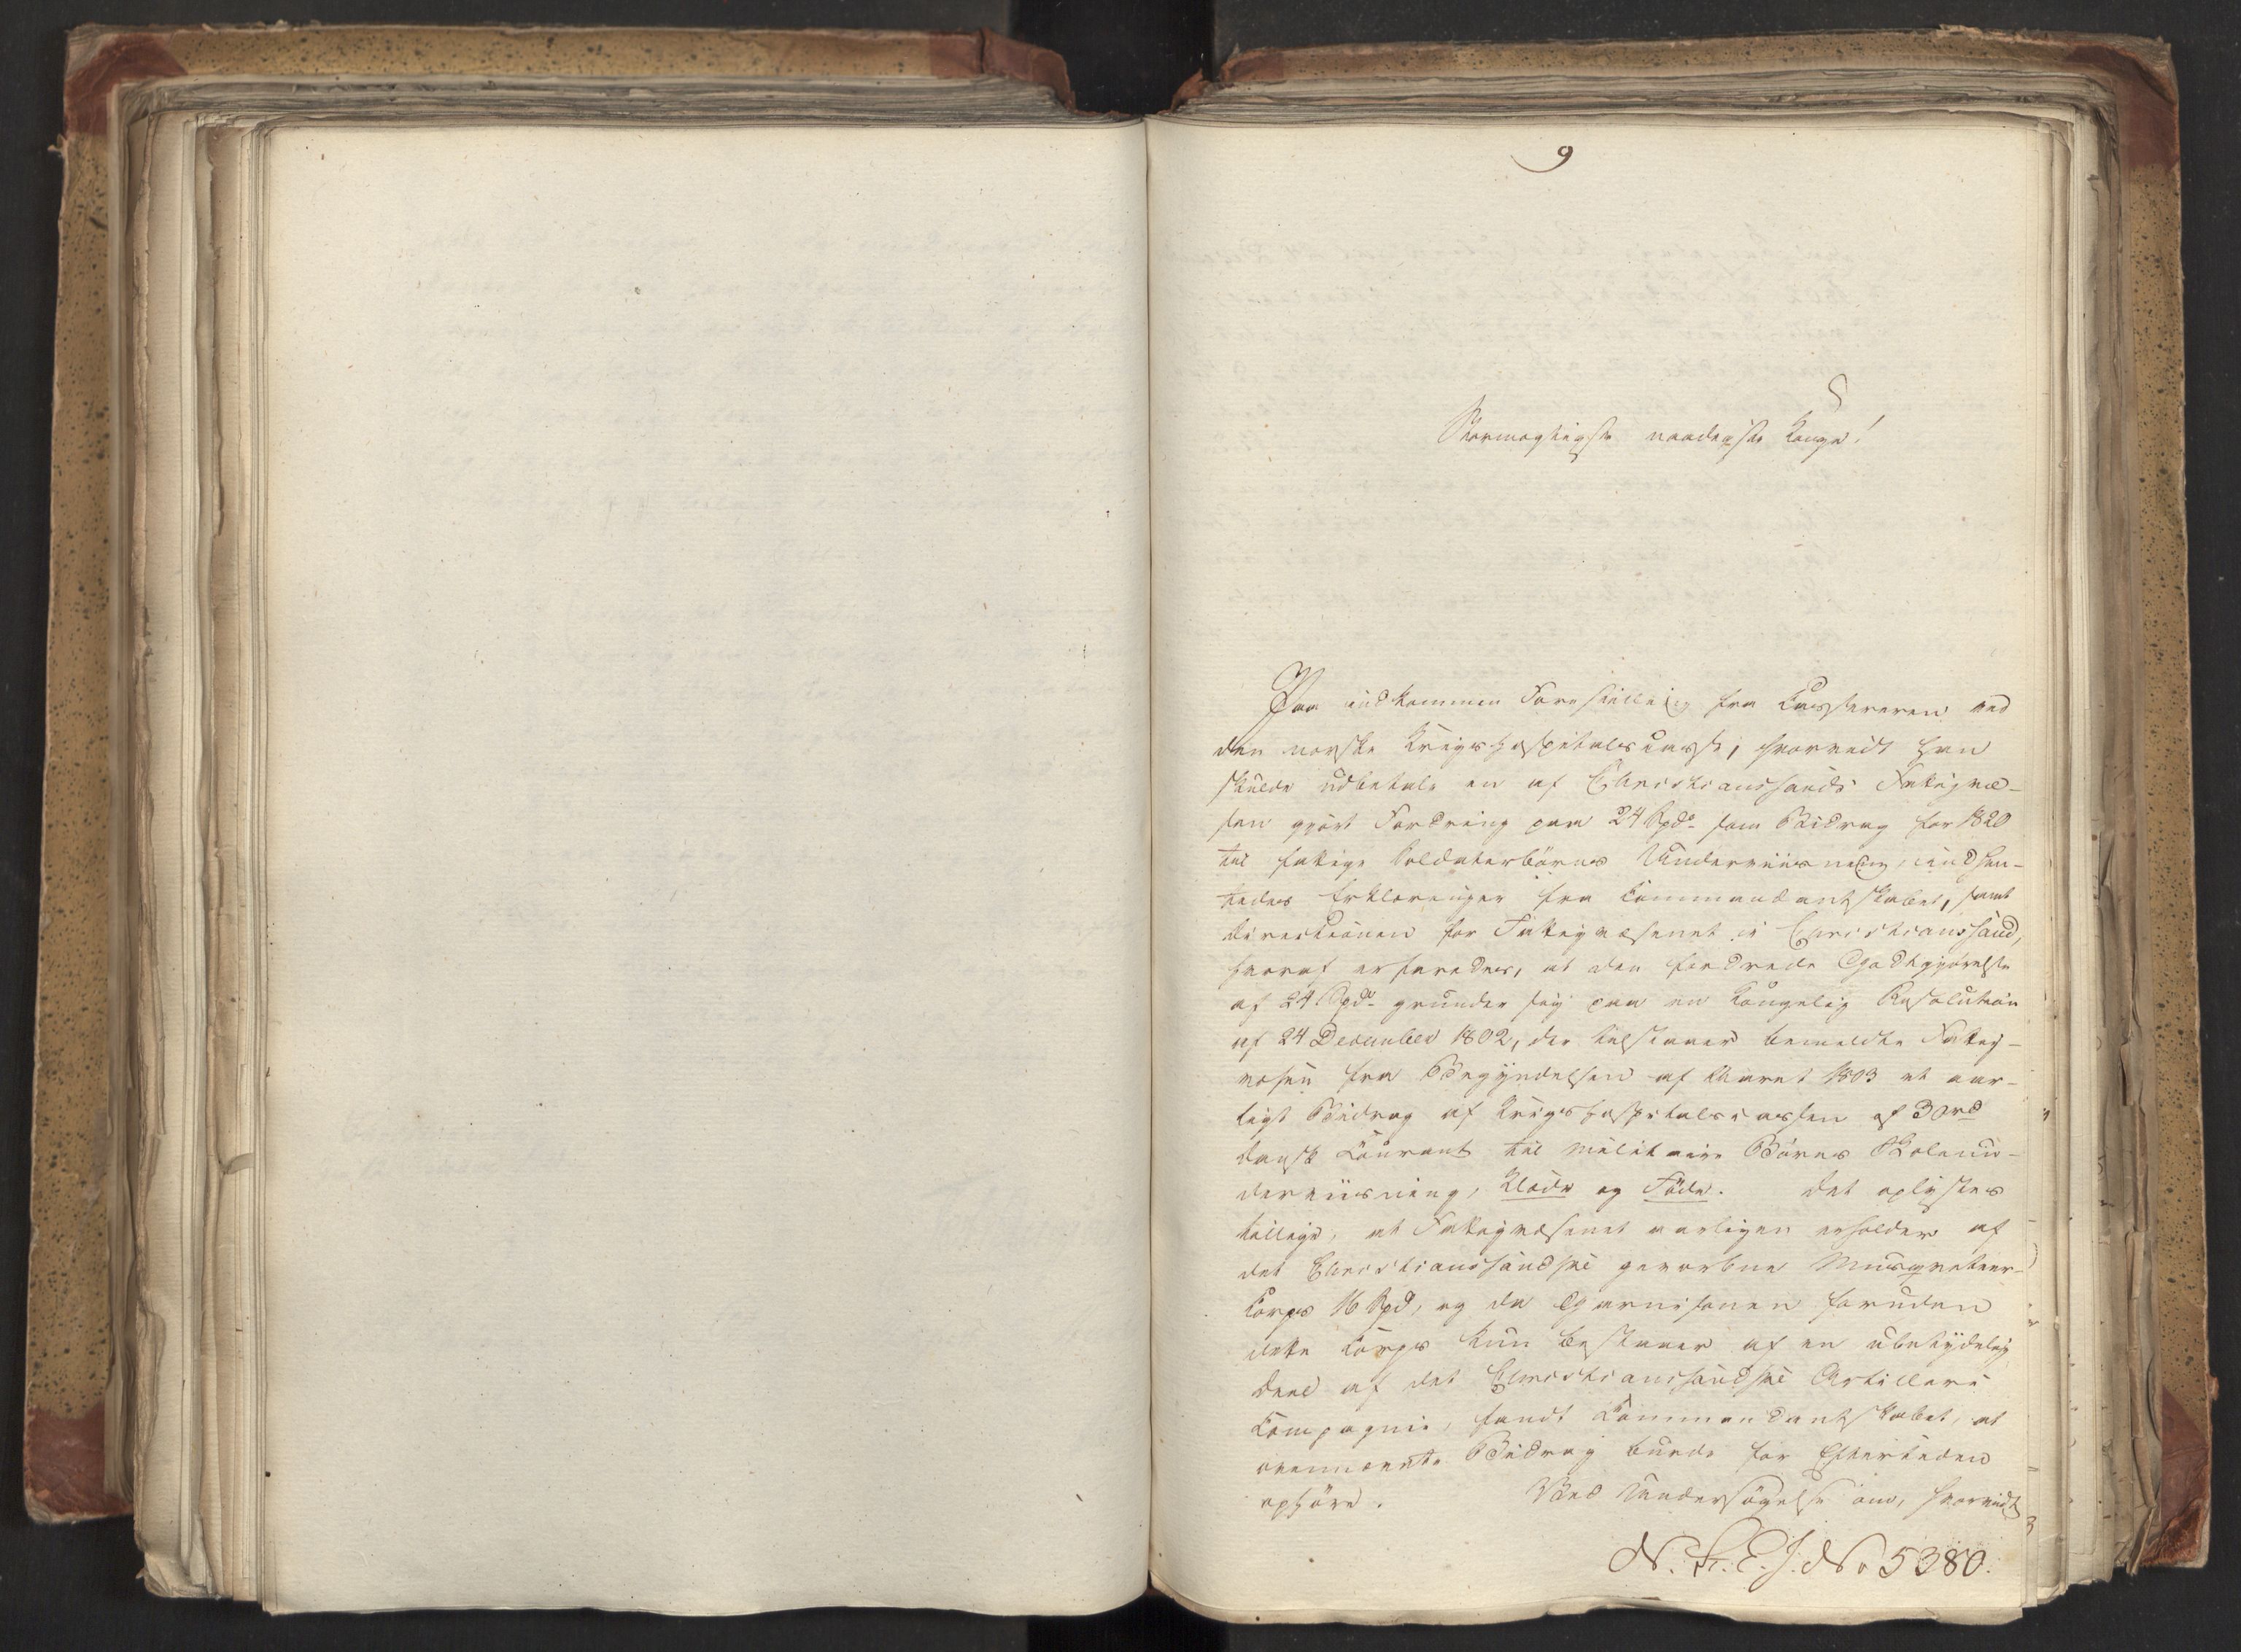 9
Stormægtigste naadigste Konge!
Paa indkommen Forestilling fra Cassereren ved
den norske Krigshospitalscasse, hvorvidt han
skulde udbetale en af Christianssands Fattigvæ-
sen gjort Fordring paa 24 Spd. som Bidrag for 1820
til fattige Soldaterbörns Underviisning, indhen-
tedes Erklæringer fra Commandantskabet, samt
Directionen for Fattigvæsenet i Christianssand,
hvoraf erfaredes, at den fordrede Godtgjörelse
af 24 Spd. grunder sig paa en Kongelig Resolution
af 24 December 1802, der tilstaaer bemeldte Fattig-
væsen fra Begyndelsen af Aaret 1803 et aar-
ligt Bidrag af Krigshospitalscassen af 30rd
dansk Courant til militaire Börns Skoleun-
derviisning, Klæde og Föde. Det oplystes
tillige, at Fattigvæsenet aarligen erholder af
det Christianssandske gevorbne Musqveteer-
Corps 16 Spd, og da Garnisonen foruden
dette Corps kun bestaaer af en ubetydelig
Deel af det Christianssandske Artillerie
Compagnie, fandt Commandantskabet, at
ovennævnte Bidrag burde for Eftertiden
ophöre. Ved Undersögelse om, hvorvidt
N. 5380.